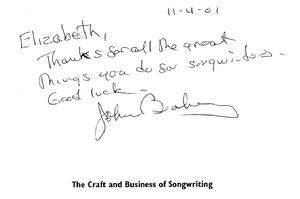 11-4-01
Elizabeth,
Thanks for all the great
things you do for songwriters.
Good luck -
John Braheny
The Craft and Business of Songwriting